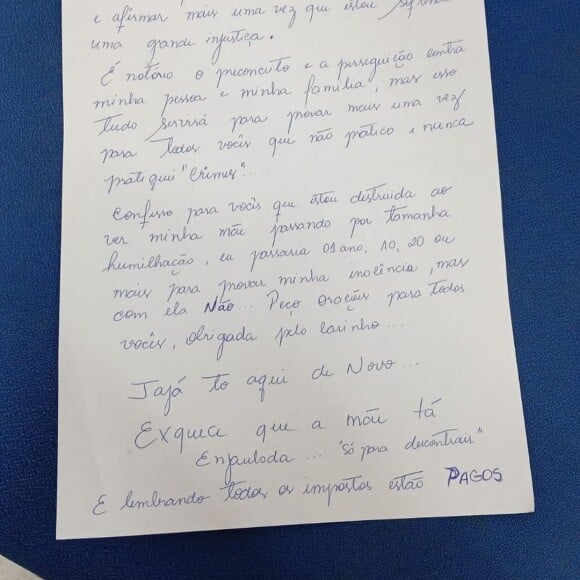 e afirmar mais uma vez que estou sofrendo
uma grande injustiça.
É notório o preconceito e a perseguição contra
minha pessoa e minha família, mas isso
tudo servirá para provar mais uma vez
para todos vocês que não pratico e nunca
pratiquei "Crimes"...
Confesso para vocês que estou distruida ao
ver minha mãe passando por tamanha
humilhação, eu passaria 01 ano, 10, 20 ou
mais para provar minha inocência, mas
com ela Não... Peço orações para todos
vocês, obrigada pelo carinho...
Jajá to aqui de Novo...
Exquece que a mãe tá
Enjaulada... "só para descontrair"
E lembrando todos os impostos estão PAGOS